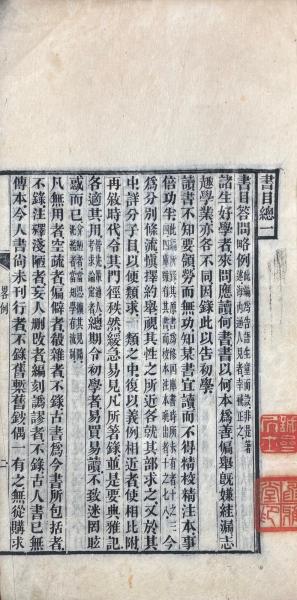 書目總一
書目答問略例此編爲告語生童而設非是著述海內通人見者幸補正之
諸生好學者來問應讀何書書以何本爲善偏舉既嫌絓漏志
趨學業亦各不同因錄此以告初學
讀書不知要領勞而無功知某書宜讀而不得精校精注本事
倍功半
今爲分別條流慎擇約舉視其性之所近各就其部求之又於其
中詳分子目以便類求一類之中復以義例相近者使相比附
再敘時代令其門徑秩然緩急易見凡所著錄並是要典雅記
各適其用總期令初學者易買易讀不致迷罔眩
惑而已
凡無用者空疏者偏僻者殽雜者不錄古書爲今書所包括者
不錄注釋淺陋者妄人刪改者編刻譌謬者不錄古人書已無
傳本今人書尚未刊行者不錄舊槧舊鈔偶一有之無從購求
略例